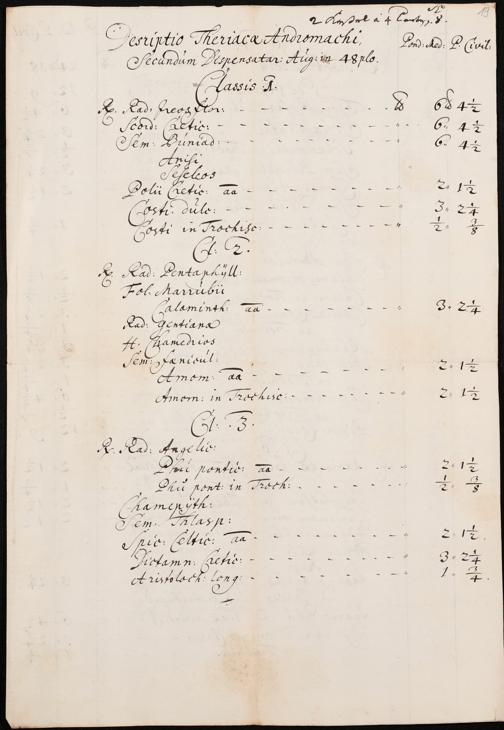 13
2 à 4 No. 8.
Desriptio Theriacæ Andromachi, Pond: Med: P. Civil.
Secundum Despensatar: Aug: in 48plo.
Classis 1.
Rx. Rad: Ireos flor: ℔ 6 ℔ 4½
Scord: Cretic: 6. 4½
Sem: Buniad: 6. 4½
Anisi
Seseleos
Polii Cretic: aa 2. 1½
Costi dulc: 3. 2¼
Costi in Trochisc: ½ ⅜
Cl. 2.
Rx Rad: Pentaphÿll:
Fol. Marrubii
Calaminth: aa 3. 2¼
Rad: Gentianæ
H: Chamedrios
Sem: fænicul:
Amom: aa 2. 1½
Amom: in Trochisc: 2. 1½
Cl. 3.
Rx. Rad: Angelic:
Phu pontic: aa 2. 1½
Phu pont: in Troch: ½ ⅜
Chamepÿth:
Sem: Thlasp:
Spic: Celtic: aa 2. 1½
Dictamn: Cretic: 3. 2¼
Aristoloch: long: 1. ¾